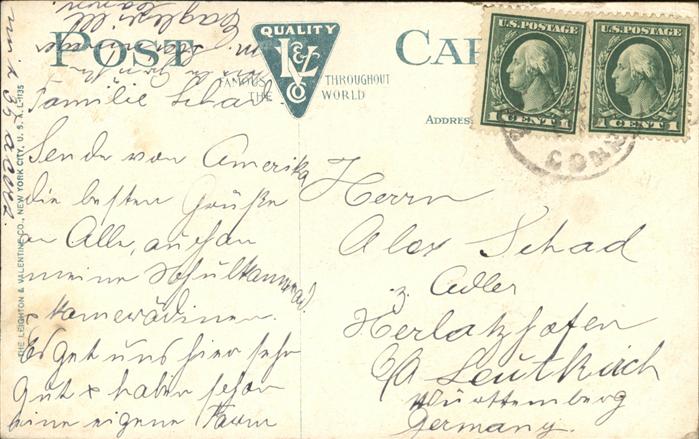 POST CAR
QUALITY
L & V Co
FAMOUS THROUGHOUT
THE WORLD
ADDRESS
U.S. POSTAGE
1 CENT 1
U.S. POSTAGE
1 CENT 1
CONN
THE LEIGHTON & VALENTINE CO., NEW YORK CITY, U. S. A. L-1135
Familie Schad
Sende von Amerika
die besten Grüße
an Alle, auch an
meine Schulkamerad.
& Kamerädinen.
Es get uns hier sehr
gut & haben schon
eine eigene Farm
mit 35 acers.
Eagleville
Conn.
Herrn
Alex Schad
z. Adler
Herlatzhofen
O/A Leutkirch
Württemberg
Germany.